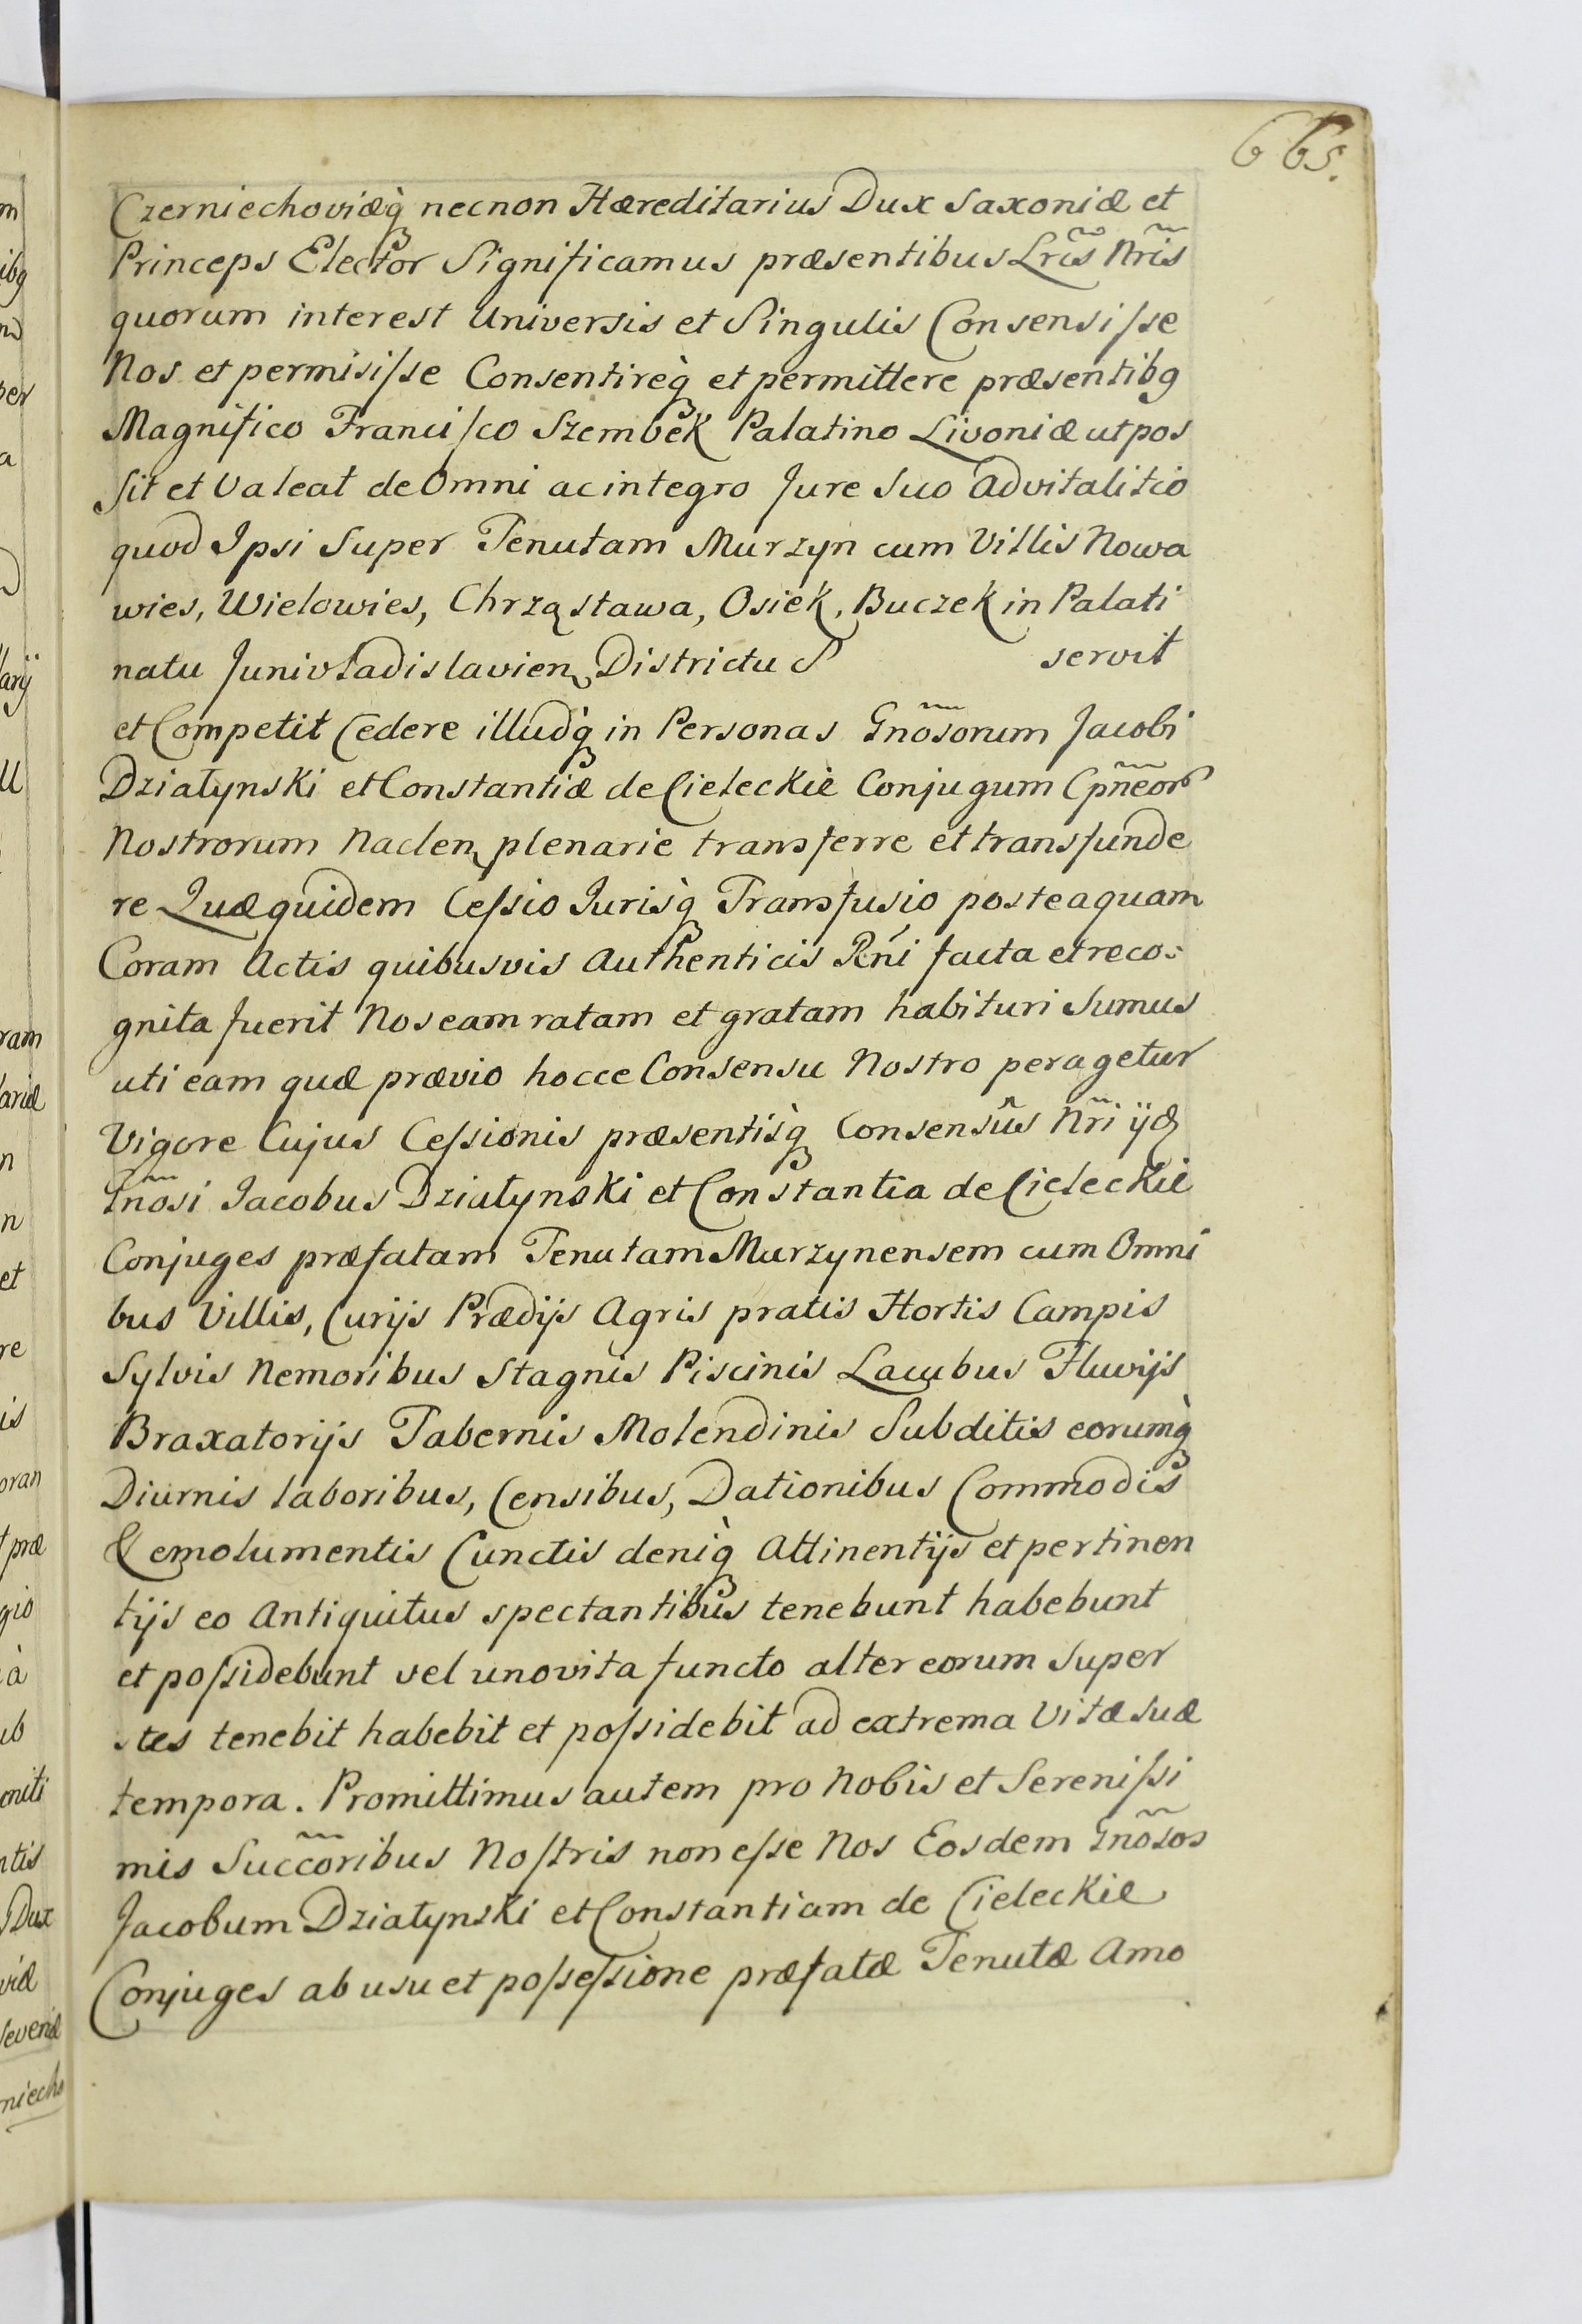 665.
Czerniechoviæq̀ necnon Hæreditarius Dux Saxoniæ et
Princeps Elector Significamus præsentibus Lr̃is Nr̃is
quorum interest Universis et Singulis Consensiſse
Nos et permisiſse Consentireq̀ et permittere præsentibq
Magnifico Franciſco Szembek Palatino Livoniæ ut pos
sit et Valeat de Omni ac integro Jure Suo advitalitio
quod Ipsi Super Tenutam Murzyn cum Villis Nowa
wies, Wielowies, Chrząstawa, Osiek, Buczek in Palati
natu Junivladislavien Districtu S servit
et Competit Cedere illudq̀ in Personas Gnõsorum Jacobi
Działynski et Constantiæ de Cieleckie Conjugum Cpñeor
Nostrorum Naclen plenarie transferre et transfunde
re Quæquidem Ceſsio Jurisq̀ Transfusio posteaquam
Coram Actis quibusvis Authenticis Rńi facta et reco:
gnita fuerit Nos eam ratam et gratam habituri Sumus
uti eam quæ prævio hocce Consensu Nostro peragetur
Vigore Cujus Ceſsionis præsentisq̀ Consensûs Nr̃i ijd
Gnõsi Jacobus Działynski et Constantia de Cieleckie
Conjuges præfatam Tenutam Murzynensem cum Omni
bus Villis, Curijs Prædijs Agris pratis Hortis Campis
Sylvis Nemoribus Stagnis Piscinis Lacubus Fluvijs
Braxatorijs Tabernis Molendinis Subditis eorumq̀
Diurnis laboribus, Censibus, Dationibus Commodis
& emolumentis Cunctis deniq̀ Attinentijs et pertinen
tijs eo Antiquitus spectantibus tenebunt habebunt
et poſsidebunt vel uno vita functo alter eorum Super
stes tenebit habebit et poſsidebit ad extrema Vitæ Suæ
tempora. Promittimus autem pro Nobis et Sereniſsi
mis Succõribus Noſtris non eſse Nos Eosdem Gnõsos
Jacobum Działynski et Constantiam de Cieleckie
Conjuges ab usu et poſseſsione præfatæ Tenutæ Amo